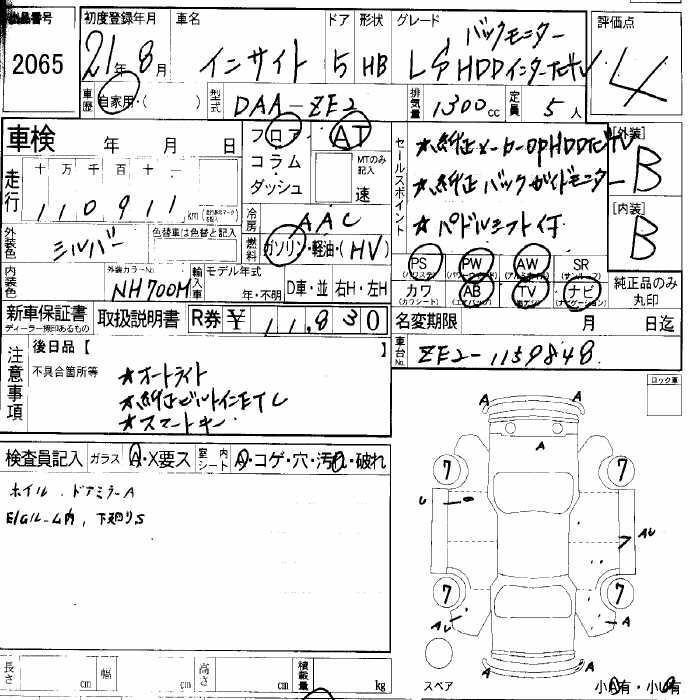 出品番号 初度登録年月 車名 ドア 形状 グレード 評価点
2065 21年8月 インサイト 5 HB バックモニター
LS HDDインターナビTV 4
車歴 自家用・( ) 型式 DAA-ZE2 排気量 1300cc 定員 5人
車検 年 月 日 フロア AT [外装]
コラム MTのみ記入 B
ダッシュ 速 [内装]
走行 十万千百十一 B
110911 km
セールスポイント
★純正メーカーOPHDDナビTV
★純正バックガイドモニター
★パドルシフト付
外装色 シルバー 色替車は色替と記入 冷房 AAC
燃料 ガソリン・軽油・(HV)
PS PW AW SR
(パワステ) (パワーウィンド) (アルミホイル) (サンルーフ)
カワ AB TV ナビ
(カワシート) (エアバック) (ナビゲーション)
純正品のみ丸印
内装色 外装カラーNo. NH700M 輸入車 モデル年式 年・不明 D車・並 右H・左H
新車保証書 取扱説明書 R券 ¥ 11,830
ディーラー捺印あるもの
名変期限 月 日迄
注意事項 後日品【 】
不具合箇所等
★オートライト
★純正ビルトインETC
★スマートキー
車台No. ZE2-1159848
ロック車
検査員記入 ガラス A・X要ス 室内シート A・コゲ・穴・汚れ・破れ
ホイル、ドアミラーA
E/Gルーム内、下廻りS
A A
A
7 7
U AU
7 7
AU A
A A
スペア 小A有・小U有
長さ cm 幅 cm 高さ cm 積載量 kg